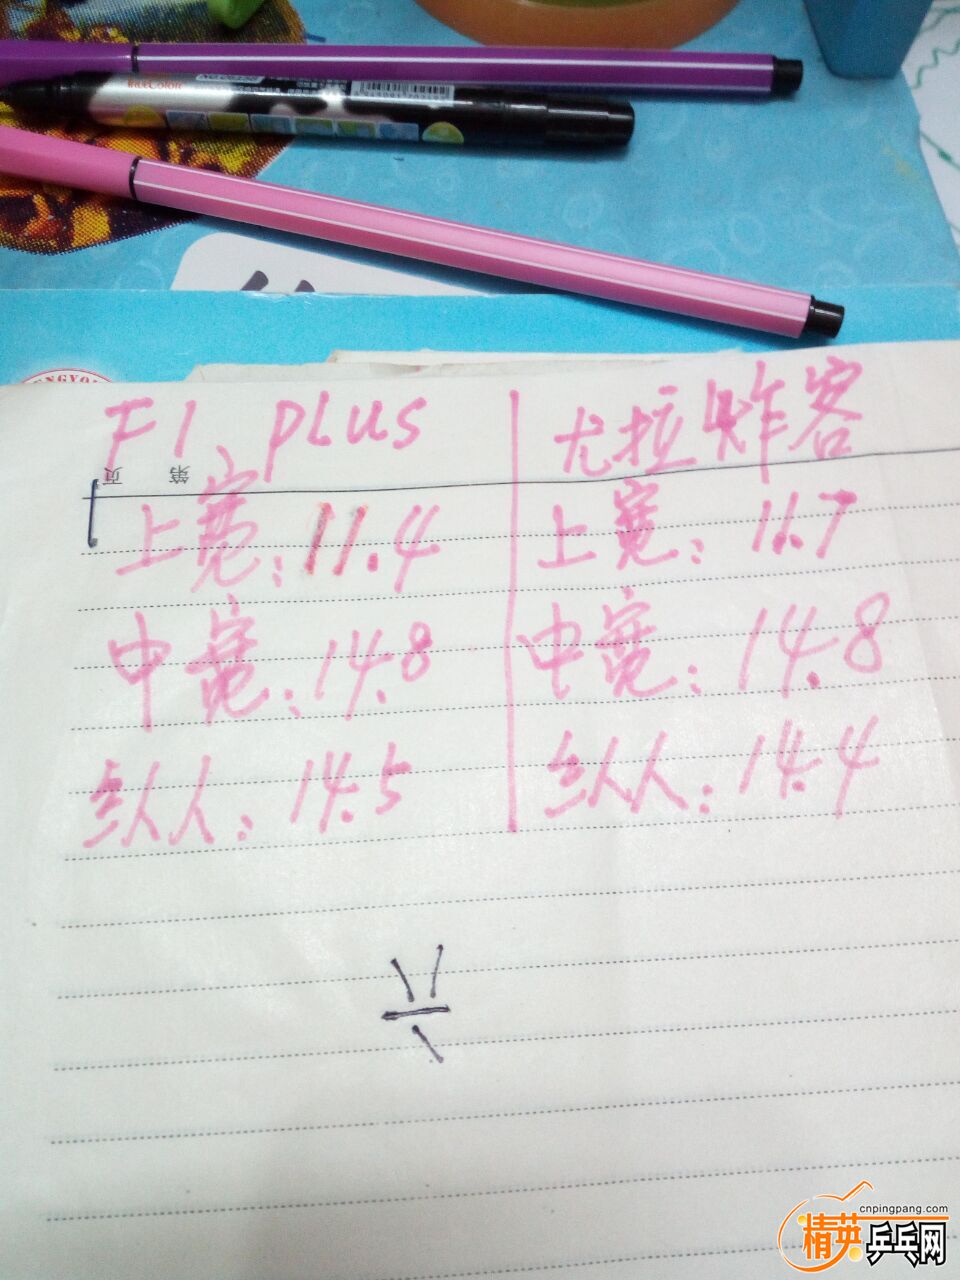 TrueColor
F1 plus
上宽:11.4
中宽:14.8
纵人:14.5
尤拉炸客
上宽:11.7
中宽:14.8
纵人:14.4
第 页
cnpingpang.com
精英乒乓网